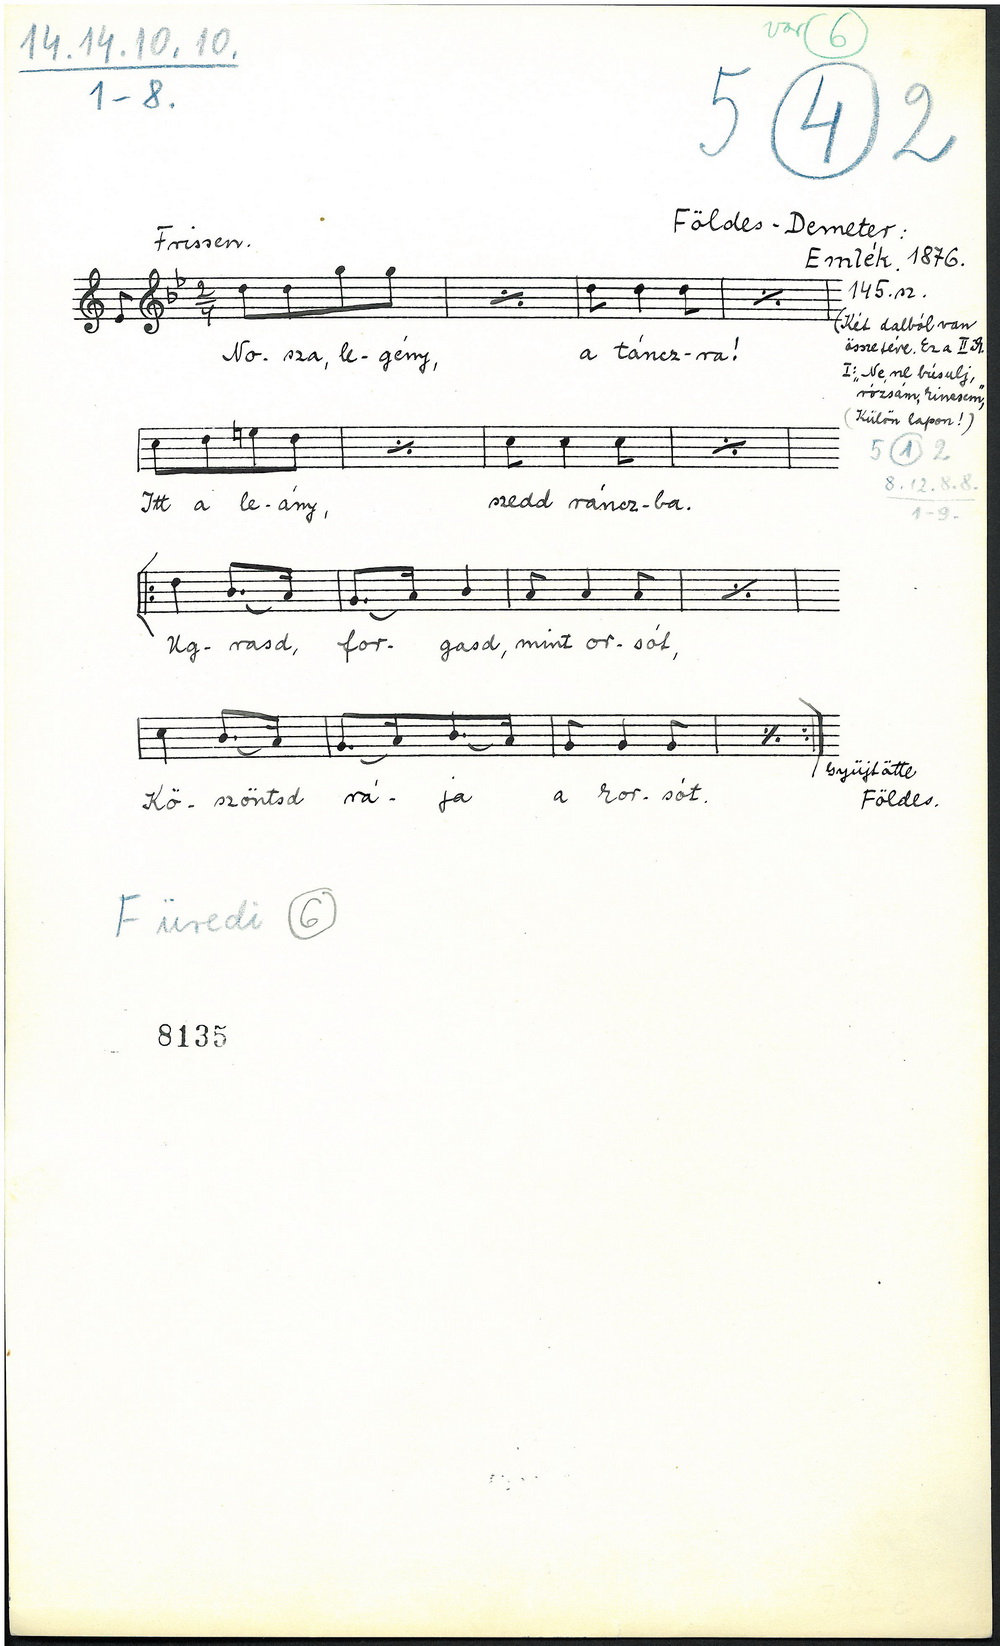 14.14.10.10.
1-8.
var 6
5 4 2
Földes-Demeter:
Emlék. 1876.
145.sz.
(Két dalból van
összetéve. Ez a II.
I: "Ne, ne búsulj,
rózsám, kincsem,"
(Külön lapon!)
5 1 2
8.12.8.8.
1-9.
Frissen.
2/4
No- sza, le- gény, a táncz-ra!
Itt a le-ány, szedd ráncz-ba.
Ug- rasd, for- gasd, mint or- sót,
Kö- szöntsd rá- ja a kor- sót.
Gyüjtötte
Földes.
Füredi 6
8135